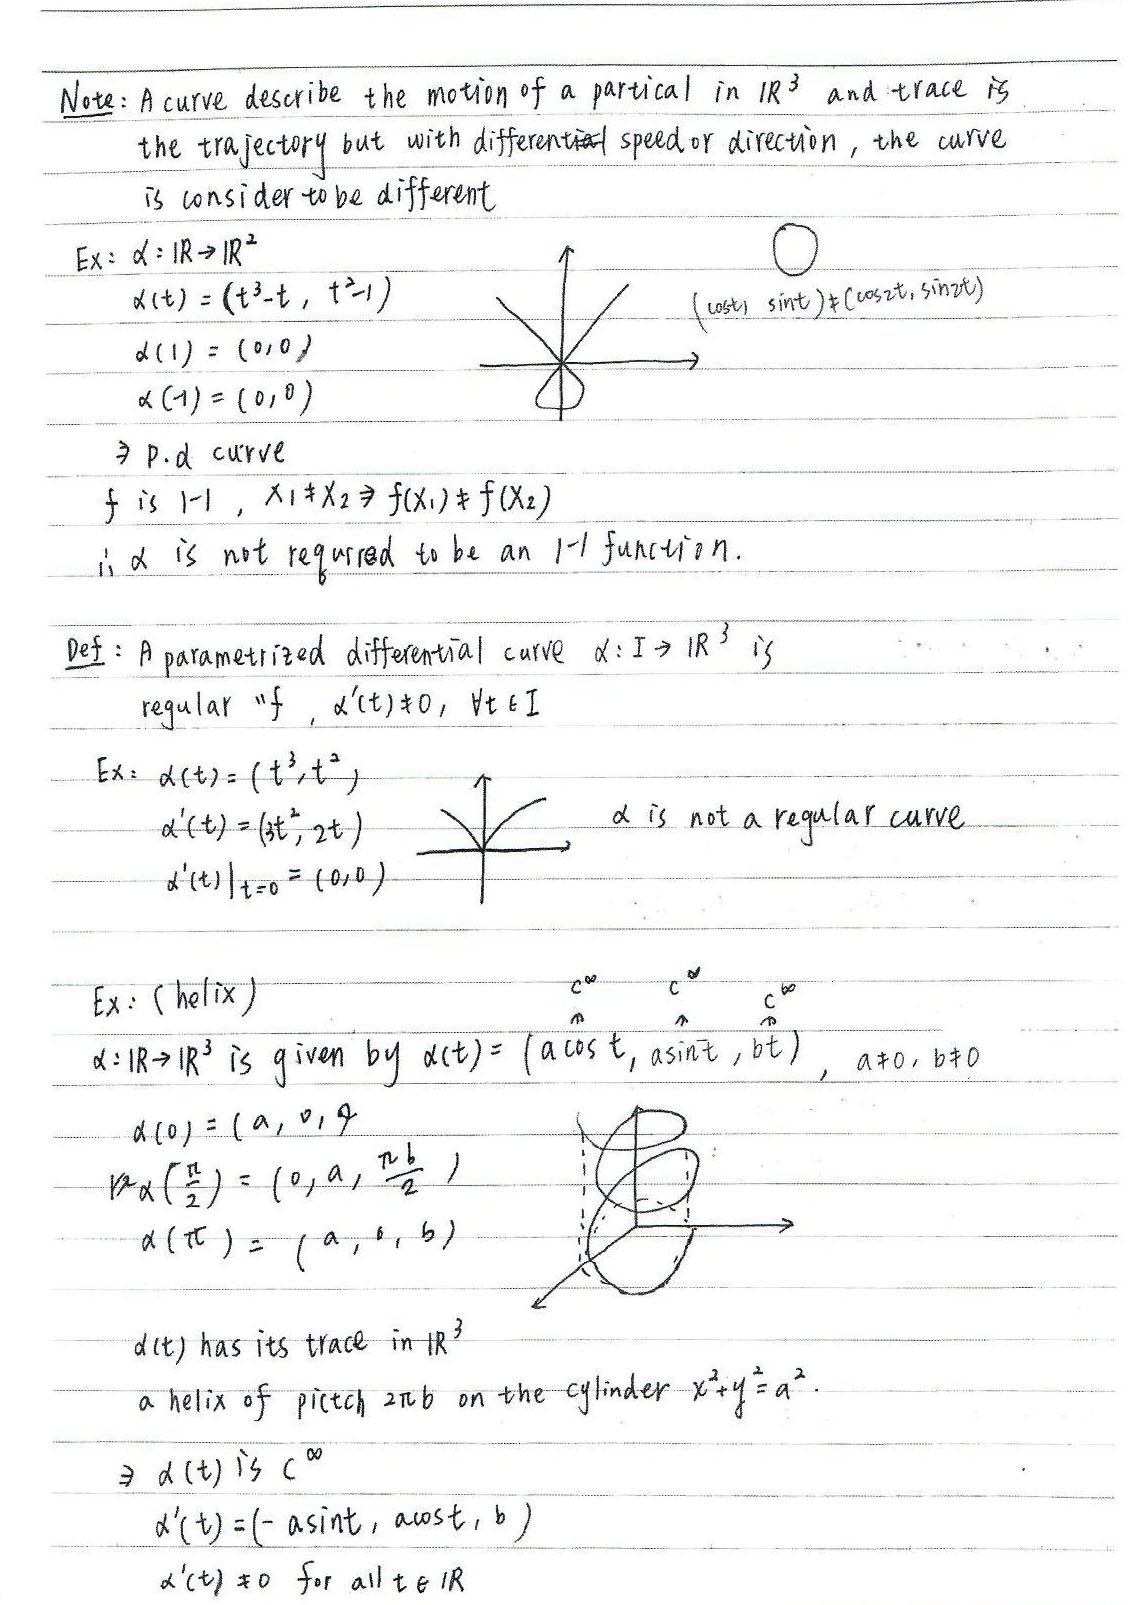 Note: A curve describe the motion of a partical in IR³ and trace is
the trajectory but with different speed or direction, the curve
is consider to be different
Ex: α: IR → IR²
α(t) = (t³-t, t²-1)
(cost, sint) ≠ (cos2t, sin2t)
α(1) = (0,0)
α(-1) = (0,0)
⇒ p.d curve
f is 1-1, X₁ ≠ X₂ ⇒ f(X₁) ≠ f(X₂)
∴ α is not requried to be an 1-1 function.
Def: A parametrized differential curve α: I → IR³ is
regular if, α'(t) ≠ 0, ∀t ∈ I
Ex: α(t) = (t³, t²)
α'(t) = (3t², 2t)
α is not a regular curve
α'(t)|t=0 = (0,0)
Ex: (helix)
C∞ C∞ C∞
↑ ↑ ↑
α: IR → IR³ is given by α(t) = (a cos t, a sin t, bt), a≠0, b≠0
α(0) = (a, 0,
α(π/2) = (0, a, πb/2)
α(π) = (a, 0, b)
α(t) has its trace in IR³
a helix of pictch 2πb on the cylinder x²+y²=a².
⇒ α(t) is C∞
α'(t) = (-asint, acost, b)
α'(t) ≠ 0 for all t ∈ IR